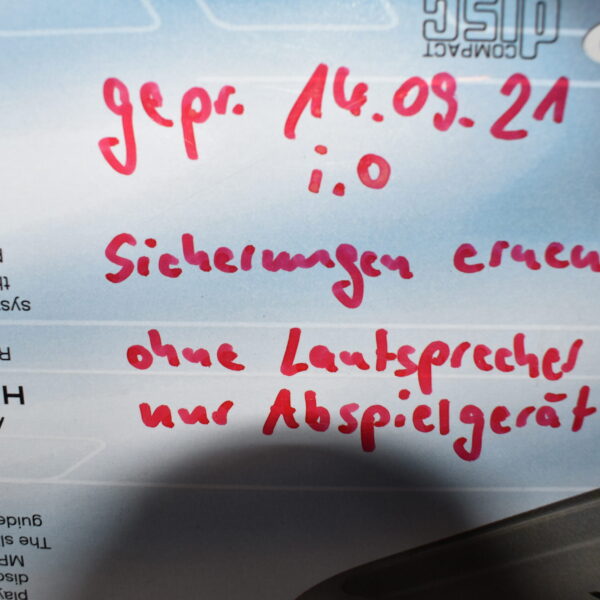 COMPACT
disc
gepr. 14.09.21
i.O
Sicherungen erneu
ohne Lautsprecher
nur Abspielgerät
th
sys
R
H
The sl
guide
play
disc
MP